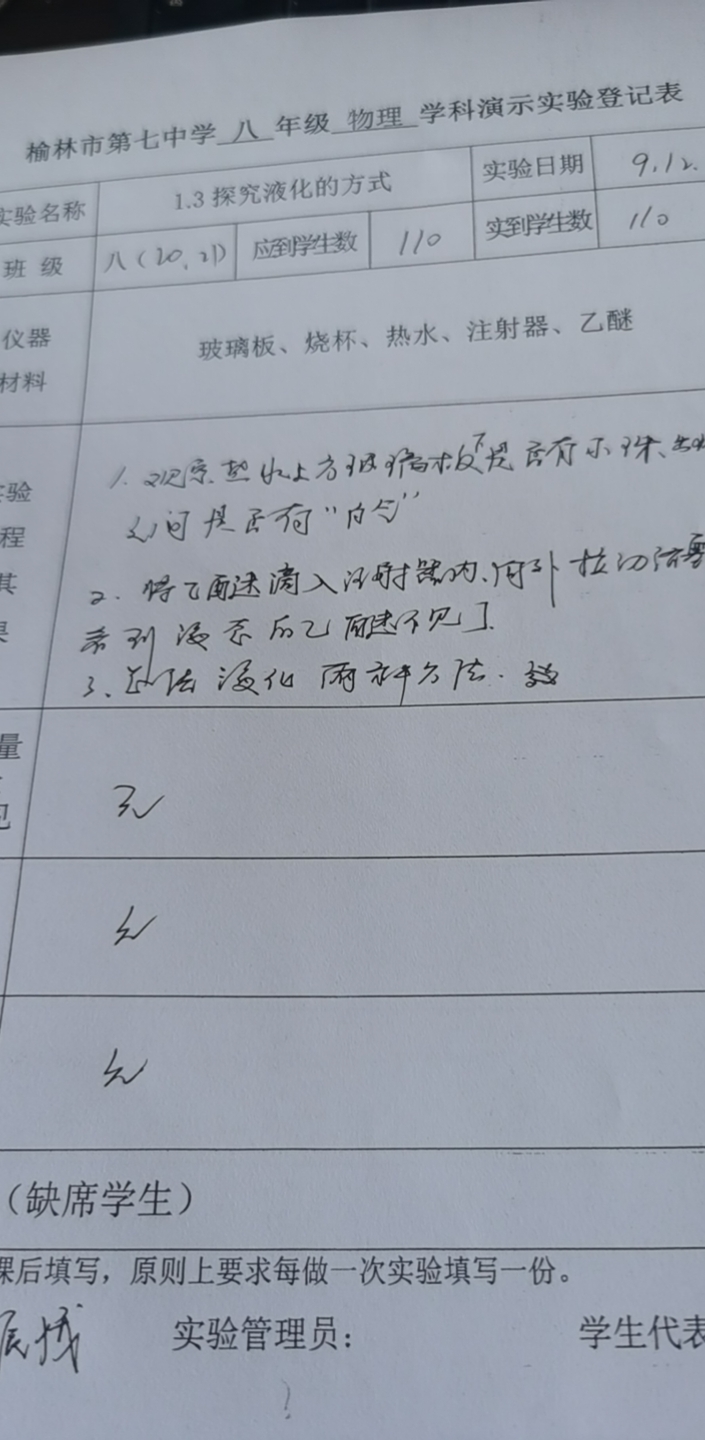 榆林市第七中学 八 年级 物理 学科演示实验登记表
实验名称 1.3 探究液化的方式 实验日期 9.12.
班 级 八（20、21） 应到学生数 110 实到学生数 110
仪器
材料
玻璃板、烧杯、热水、注射器、乙醚
验
程
其
1. 观察热水上方玻璃板下是否有小珠、
之间是否有“白气”
2. 将乙醚滴入注射器内、向外拉
看到液态的乙醚不见了.
3. 总结液化两种方法.
量
无
无
无
（缺席学生）
课后填写，原则上要求每做一次实验填写一份。
实验管理员： 学生代表